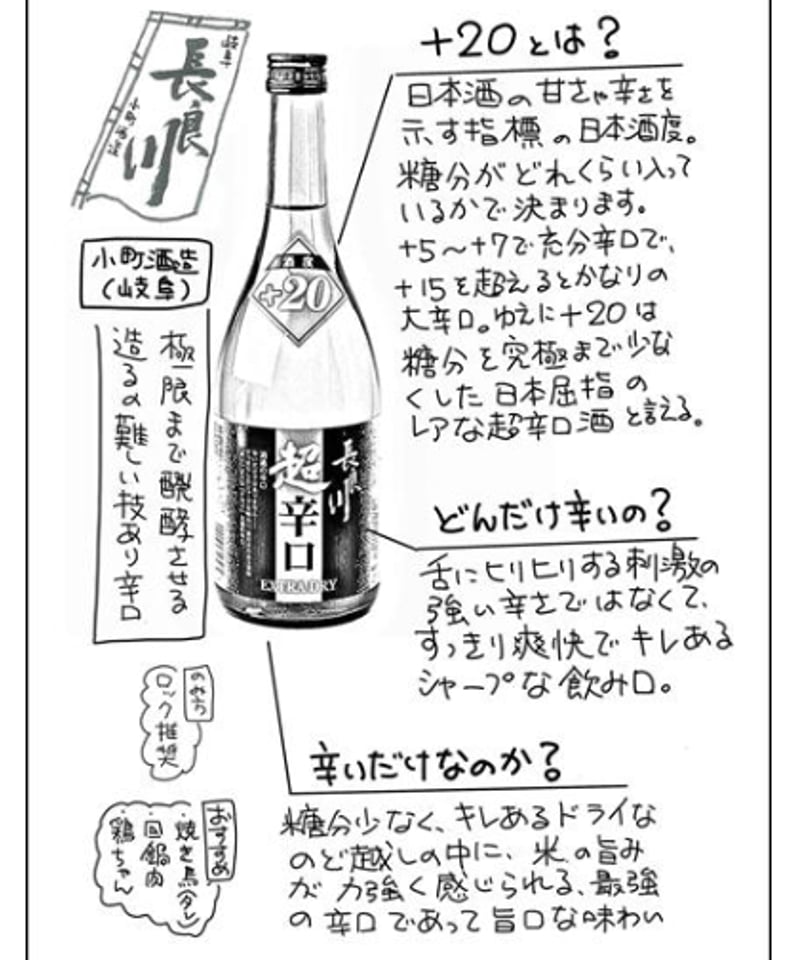 岐阜
長良川
小町酒造
小町酒造
(岐阜)
極限まで醗酵させる
造るの難しい技あり辛口
+20
長良川
超
辛口
EXTRA DRY
+20とは?
日本酒の甘さや辛さを
示す指標の日本酒度。
糖分がどれくらい入って
いるかで決まります。
+5〜+7で充分辛口で、
+15を超えるとかなりの
大辛口。ゆえに+20は
糖分を究極まで少な
くした日本屈指の
レアな超辛口酒と言える。
どんだけ辛いの?
舌にヒリヒリする刺激の
強い辛さではなくて、
すっきり爽快でキレある
シャープな飲み口。
のみ方
ロック推奨
おすすめ
・焼き鳥(タレ)
・回鍋肉
・鶏ちゃん
辛いだけなのか?
糖分少なく、キレあるドライな
のど越しの中に、米の旨み
が力強く感じられる、最強
の辛口であって旨口な味わい